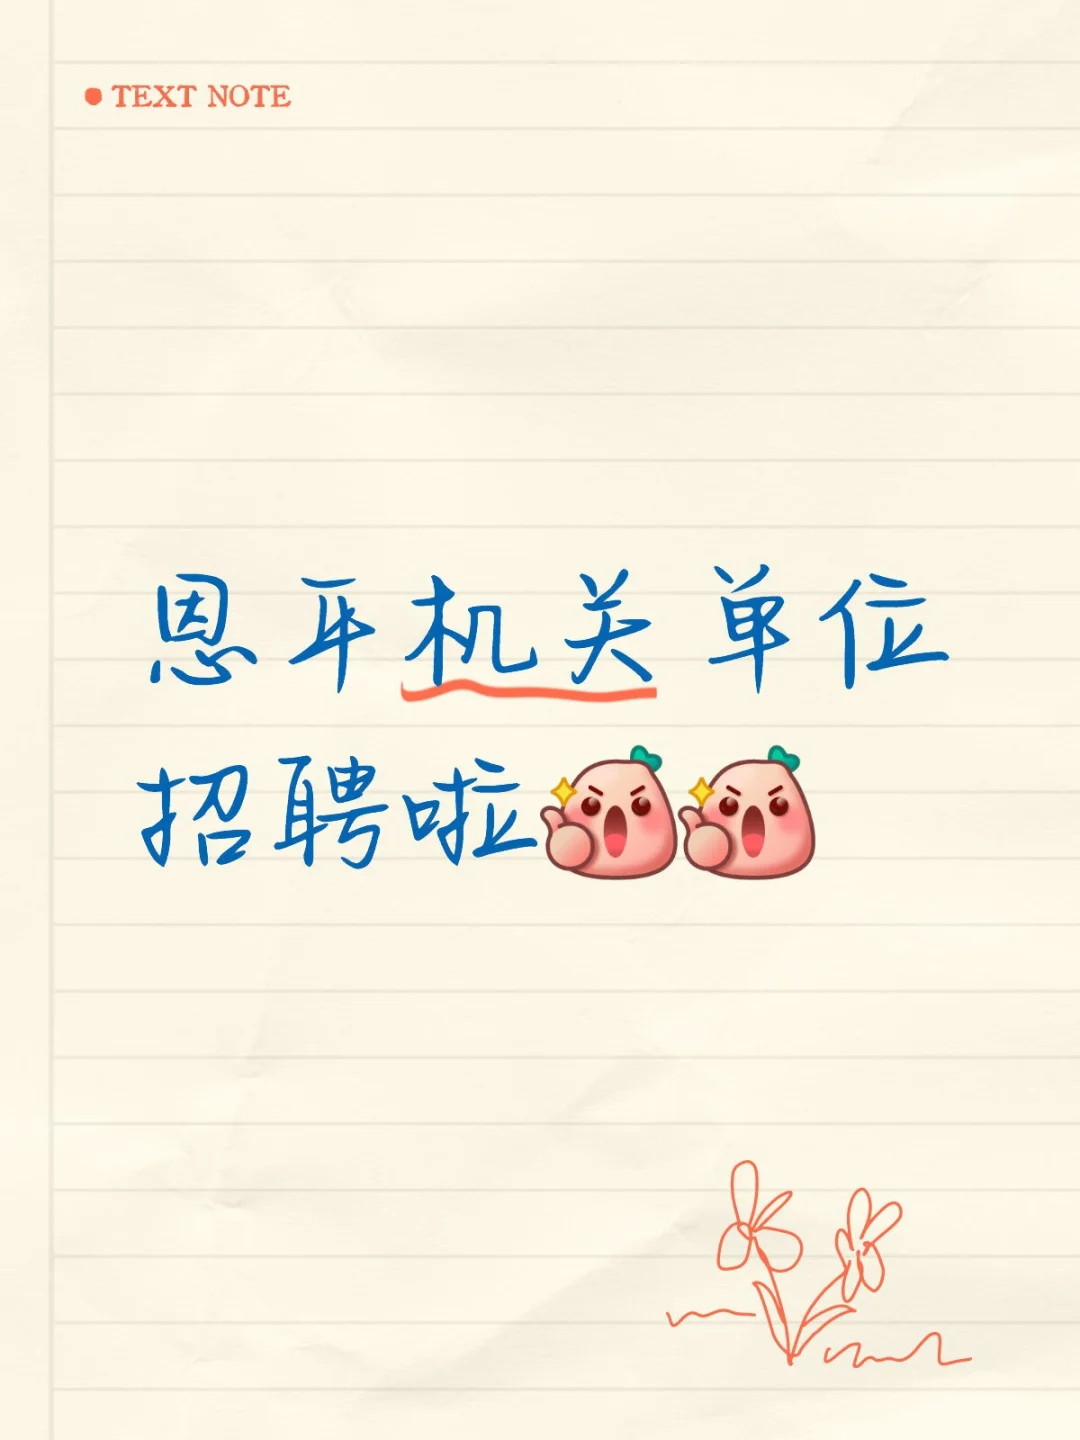 TEXT NOTE
恩平机关单位
招聘啦